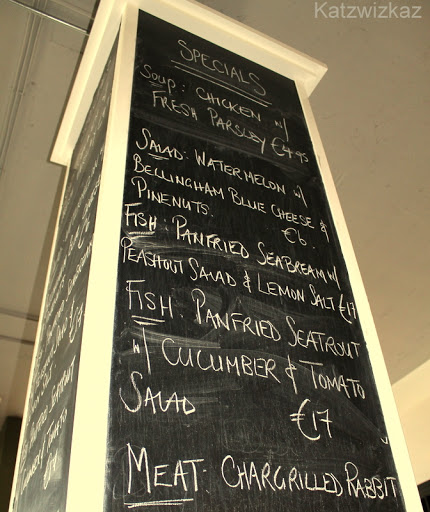 Katzwizkaz
SPECIALS
SOUP: CHICKEN W/
FRESH PARSLEY €4.95
SALAD: WATERMELON W/
BELLINGHAM BLUE CHEESE &
PINENUTS. €6.
FISH: PANFRIED SEABREAM W/
PEASHOUT SALAD & LEMON SALT €17
FISH: PANFRIED SEATROUT
W/ CUCUMBER & TOMATO
SALAD €17
MEAT: CHARGRILLED RABBIT